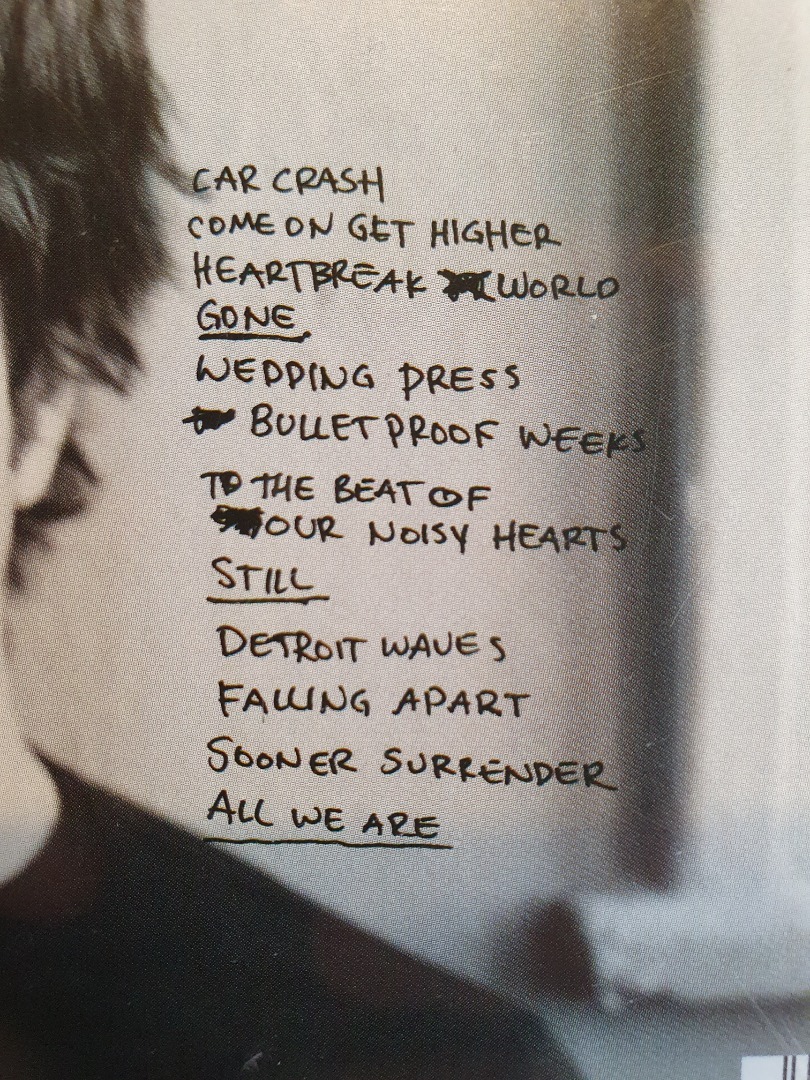 CAR CRASH
COME ON GET HIGHER
HEARTBREAK WORLD
GONE
WEDDING DRESS
BULLETPROOF WEEKS
TO THE BEAT OF
OUR NOISY HEARTS
STILL
DETROIT WAVES
FALLING APART
SOONER SURRENDER
ALL WE ARE